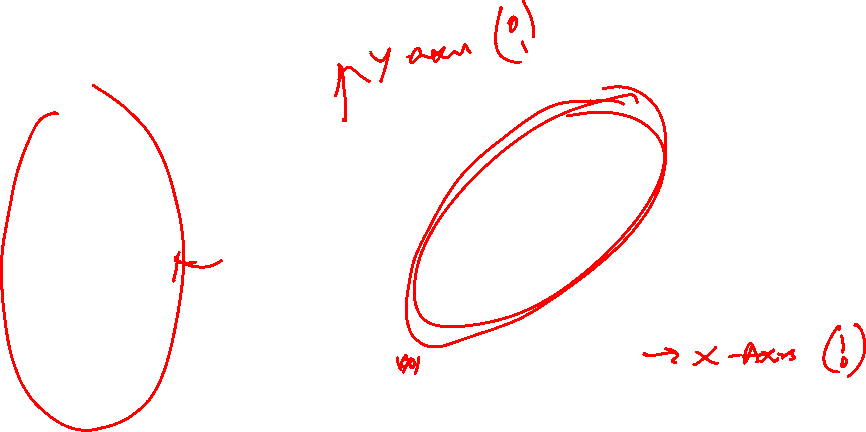 ↑ Y-axis (0
1)
→ X-Axis (1
0)